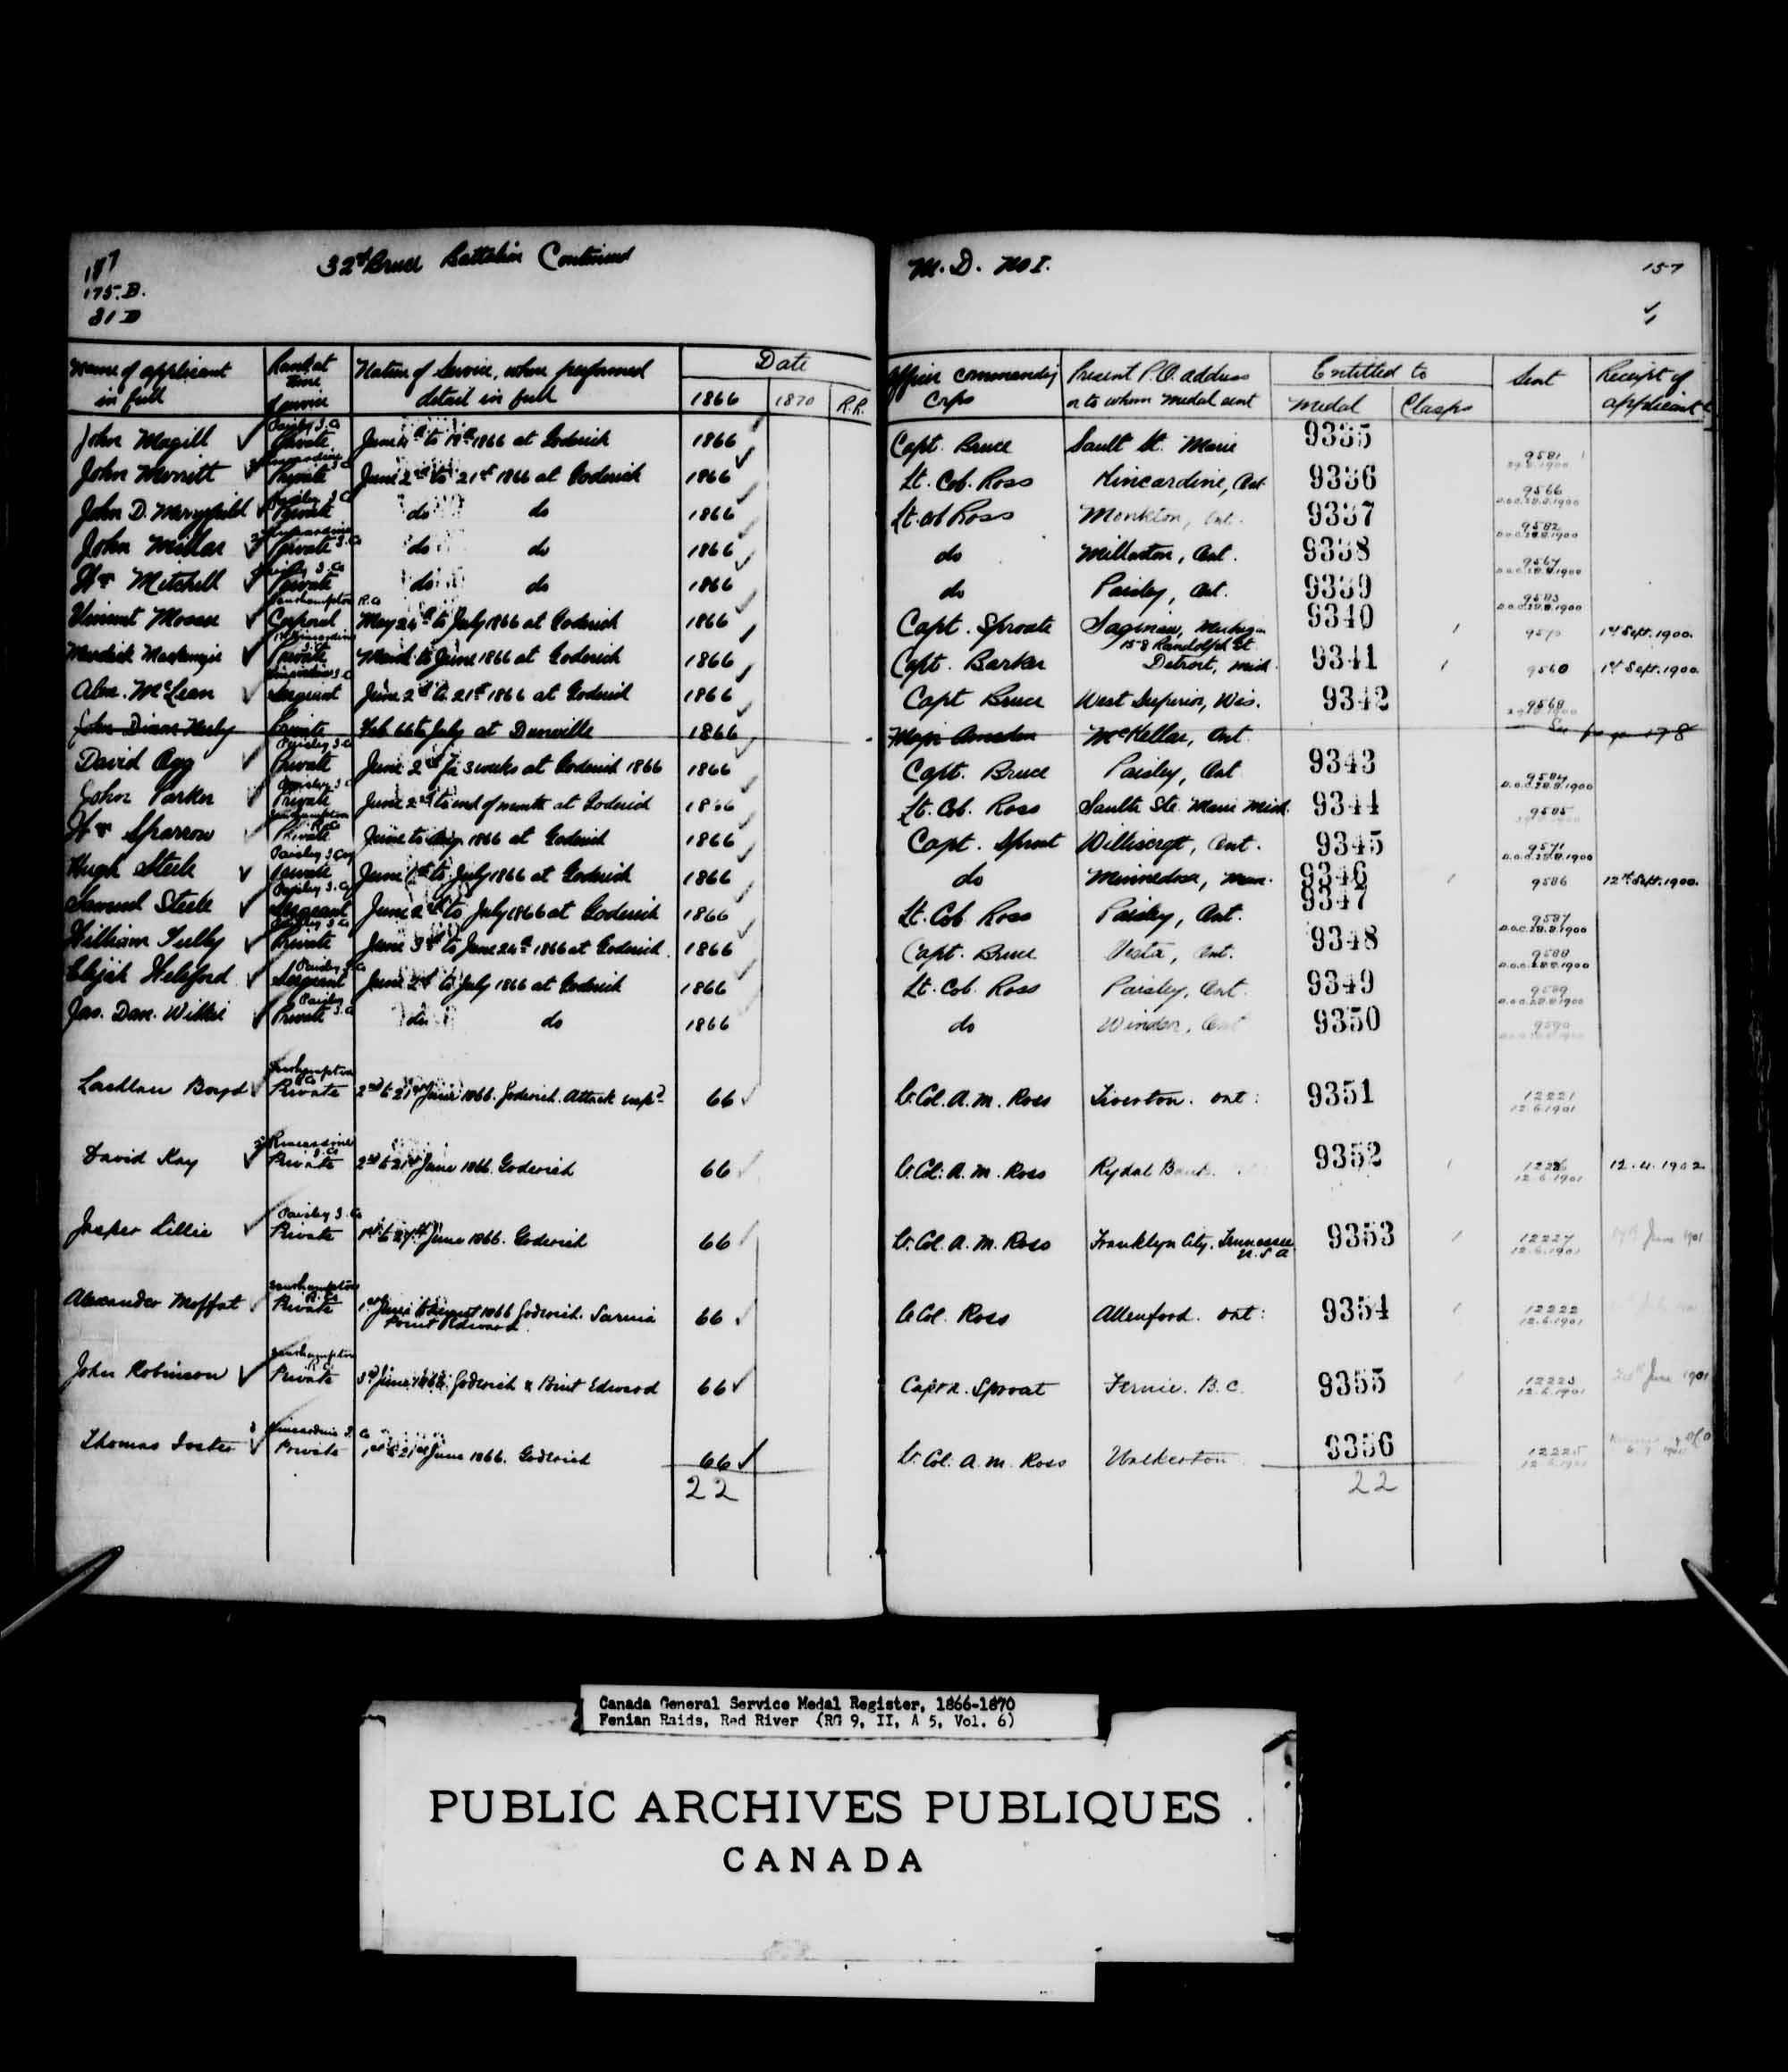 187
175.B.
31 D
32nd Bruce Battalion Continued
M. D. No I.
157
Name of applicant in full
Rank at time of service
Nature of Service, where performed detail in full
Date
1866 1870 R.R.
Officer commanding Corps
Present P.O. address or to whom medal sent
Entitled to
Medal Clasps
Sent
Receipt of applicant
John Magill Paisley I. Co Private June to 1866 at Goderich 1866 Capt. Bruce Sault St. Marie 9335 9581
John Merritt Private June 2nd to 21st 1866 at Goderich 1866 Lt. Col. Ross Kincardine, Ont 9336 9566
John D. Merryfield Paisley I. Co Private do do 1866 Lt. Col Ross Monkton, Ont. 9337 9582
John Millar Private do do 1866 do Millarton, Ont. 9338 9567
Wm Mitchell Paisley I. Co Private do do 1866 do Paisley, Ont. 9339 9583
Vincent Southampton R. Co Corporal May 24th to July 1866 at Goderich 1866 Capt. Sproate Saginaw, Michigan 9340 9570 1st Sept. 1900.
Murdick Mackenzie Private March to June 1866 at Goderich 1866 Capt. Barker 158 Randolph St. Detroit, Mich. 9341 9560 1st Sept. 1900.
Alex. McLean Sergeant June 2nd to 21st 1866 at Goderich 1866 Capt Bruce West Superior, Wis. 9342 9568
John Private Feb. 66 to July at Dunville 1866 Major Amsden McKellar, Ont See page 178
David Paisley I. Co Private June 2nd for 3 weeks at Goderich 1866 1866 Capt. Bruce Paisley, Ont 9343 9584
John Parker Paisley I. Co Private June 2nd to end of month at Goderich 1866 Lt. Col. Ross Saulte Ste. Marie Mich. 9344 9585
Wm Sparrow Southampton R. Co Private June to Aug. 1866 at Goderich 1866 Capt. Sprout Williscroft, Ont. 9345 9571
Hugh Steele Paisley I Coy Private June to July 1866 at Goderich 1866 do Minnedosa, Man. 9346 9586 12th Sept. 1900.
Samuel Steele Paisley I. Co Sergeant June 2nd to July 1866 at Goderich 1866 Lt. Col Ross Paisley, Ont. 9347 9587
William Tully Paisley I. Co Private June 3rd to June 24th 1866 at Goderich. 1866 Capt. Bruce Vesta, Ont. 9348 9588
Elijah Weliford Paisley I. Co Sergeant June 2nd to July 1866 at Goderich 1866 Lt. Col. Ross Paisley, Ont. 9349 9589
Jas. Dan. Wilkie Paisley I. Co Private do do 1866 do 9350 9590
Lauchlan Boyd Southampton R. Co Private 2nd to 21st June 1866. Goderich. Attack exp'd 66 Lt. Col. A. M. Ross Tiverton. Ont: 9351 12221 12.6.1901
David Kay Kincardine I. Co Private 2nd to 21st June 1866. Goderich 66 Lt. Col: A. M. Ross Rydal Bank. 9352 12.6.1901 12.4.1902
Jasper Lillie Paisley I. Co Private 1st to 27th June 1866. Goderich 66 Lt. Col. A. M. Ross Franklyn City. Tennessee U.S.A 9353 12227 12.6.1901 June 1901
Alexander Moffat Southampton R. Co Private 1st June to August 1866 Goderich. Sarnia Point Edward 66 Lt Col. Ross Allenford. Ont: 9354 12222 12.6.1901
John Robinson Southampton R. Co Private 3rd June 1866. Goderich & Point Edward 66 Captn. Sproat Fernie. B.C. 9355 12223 12.6.1901 June 1901
Thomas Foster Kincardine I. Co Private 1st to 21st June 1866. Goderich 66 Lt. Col. A. M. Ross Walkerton 9356 12225
22 22
Canada General Service Medal Register, 1866-1870
Fenian Raids, Red River (RG 9, II, A 5, Vol. 6)
PUBLIC ARCHIVES PUBLIQUES
CANADA